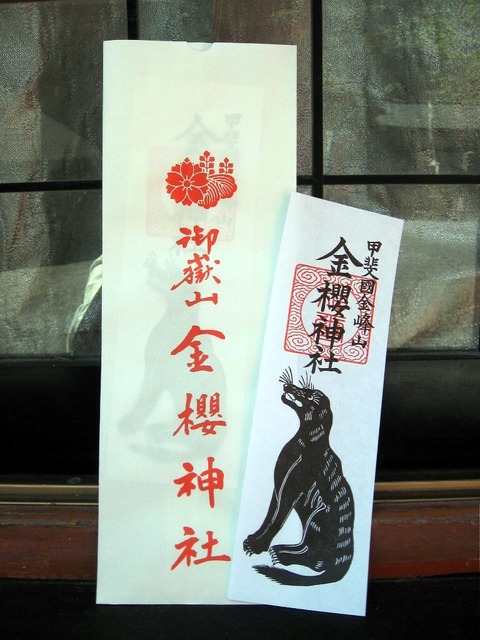 御嶽山
金櫻神社
甲斐國金峰山
金櫻神社